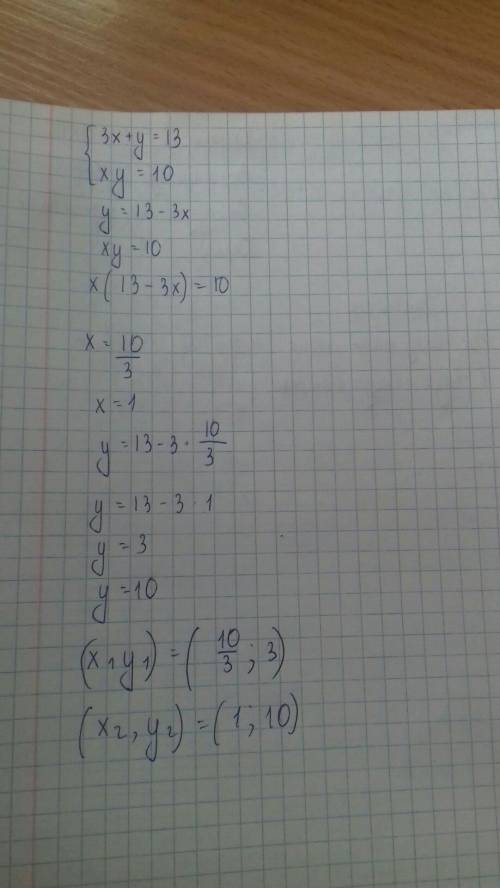 {3x+y=13
xy=10
y=13-3x
xy=10
x(13-3x)=10
x=10/3
x=1
y=13-3·10/3
y=13-3·1
y=3
y=10
(x₁y₁)=(10/3;3)
(x₂,y₂)=(1;10)